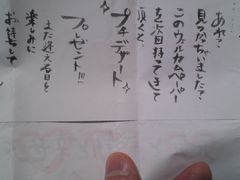 あれっ?
見つかっちゃいました?
このウェルカムペーパー
を次回持ってきて
頂くと、
プチデザート
プレゼント!!!
また逢える日を
楽しみに
お待ちして